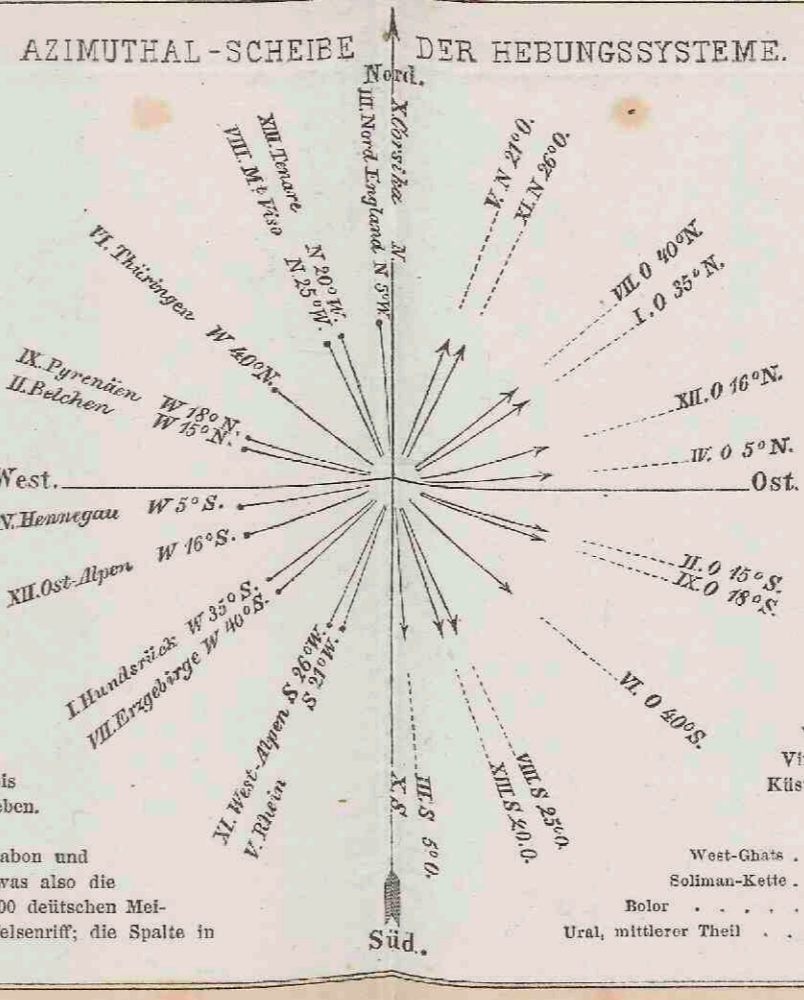 AZIMUTHAL-SCHEIBE DER HEBUNGSSYSTEME.
Nord.
III. Nord England N 5°W.
X. Corsika N.
XIII. Tenare N 20°W.
VIII. Mt. Viso N 25°W.
VI. Thüringen W 40°N.
IX. Pyrenäen W 18°N.
II. Belchen W 15°N.
West.
Hennegau W 5°S.
XII. Ost-Alpen W 16°S.
I. Hundsrück W 35°S.
VII. Erzgebirge W 40°S.
XI. West-Alpen S 26°W.
V. Rhein S 21°W.
V. N 21°O.
XI. N 26°O.
VII. O 40°N.
I. O 35°N.
XII. O 16°N.
IV. O 5°N.
Ost.
II. O 15°S.
IX. O 18°S.
VI. O 40°S.
VIII. S 25°O.
XIII. S 20.O.
III. S 5°O.
X. S.
Süd.
eben.
abon und
was also die
00 deütschen Mei-
elsenriff; die Spalte in
West-Ghats .
Soliman-Kette .
Bolor . . . . .
Ural, mittlerer Theil . .